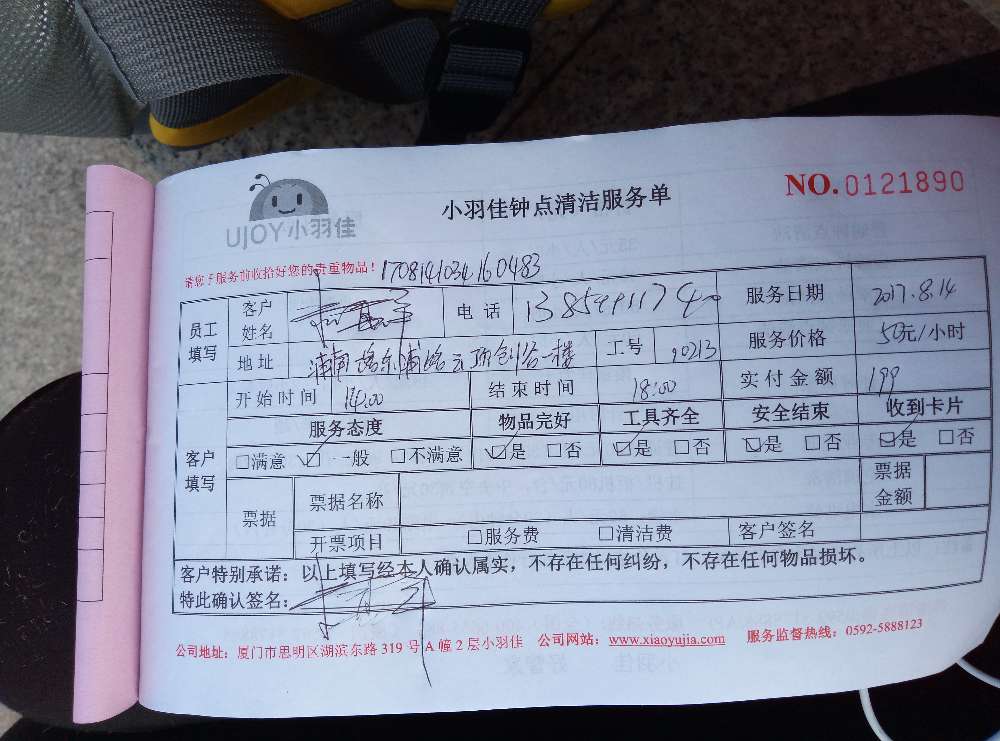 UJOY小羽佳
小羽佳钟点清洁服务单
NO.0121890
请您予服务前收拾好您的贵重物品！1708141034160483
员工填写 客户姓名 电话 服务日期 2017.8.14
地址 工号 90213 服务价格 50元/小时
开始时间 14:00 结束时间 18:00 实付金额 199
客户填写 服务态度 物品完好 工具齐全 安全结束 收到卡片
□满意 ☑一般 □不满意 ☑是 □否 ☑是 □否 ☑是 □否 ☑是 □否
票据 票据名称 票据金额
开票项目 □服务费 □清洁费 客户签名
客户特别承诺：以上填写经本人确认属实，不存在任何纠纷，不存在任何物品损坏。
特此确认签名：
公司地址：厦门市思明区湖滨东路319号A幢2层小羽佳 公司网站：www.xiaoyujia.com 服务监督热线：0592-5888123